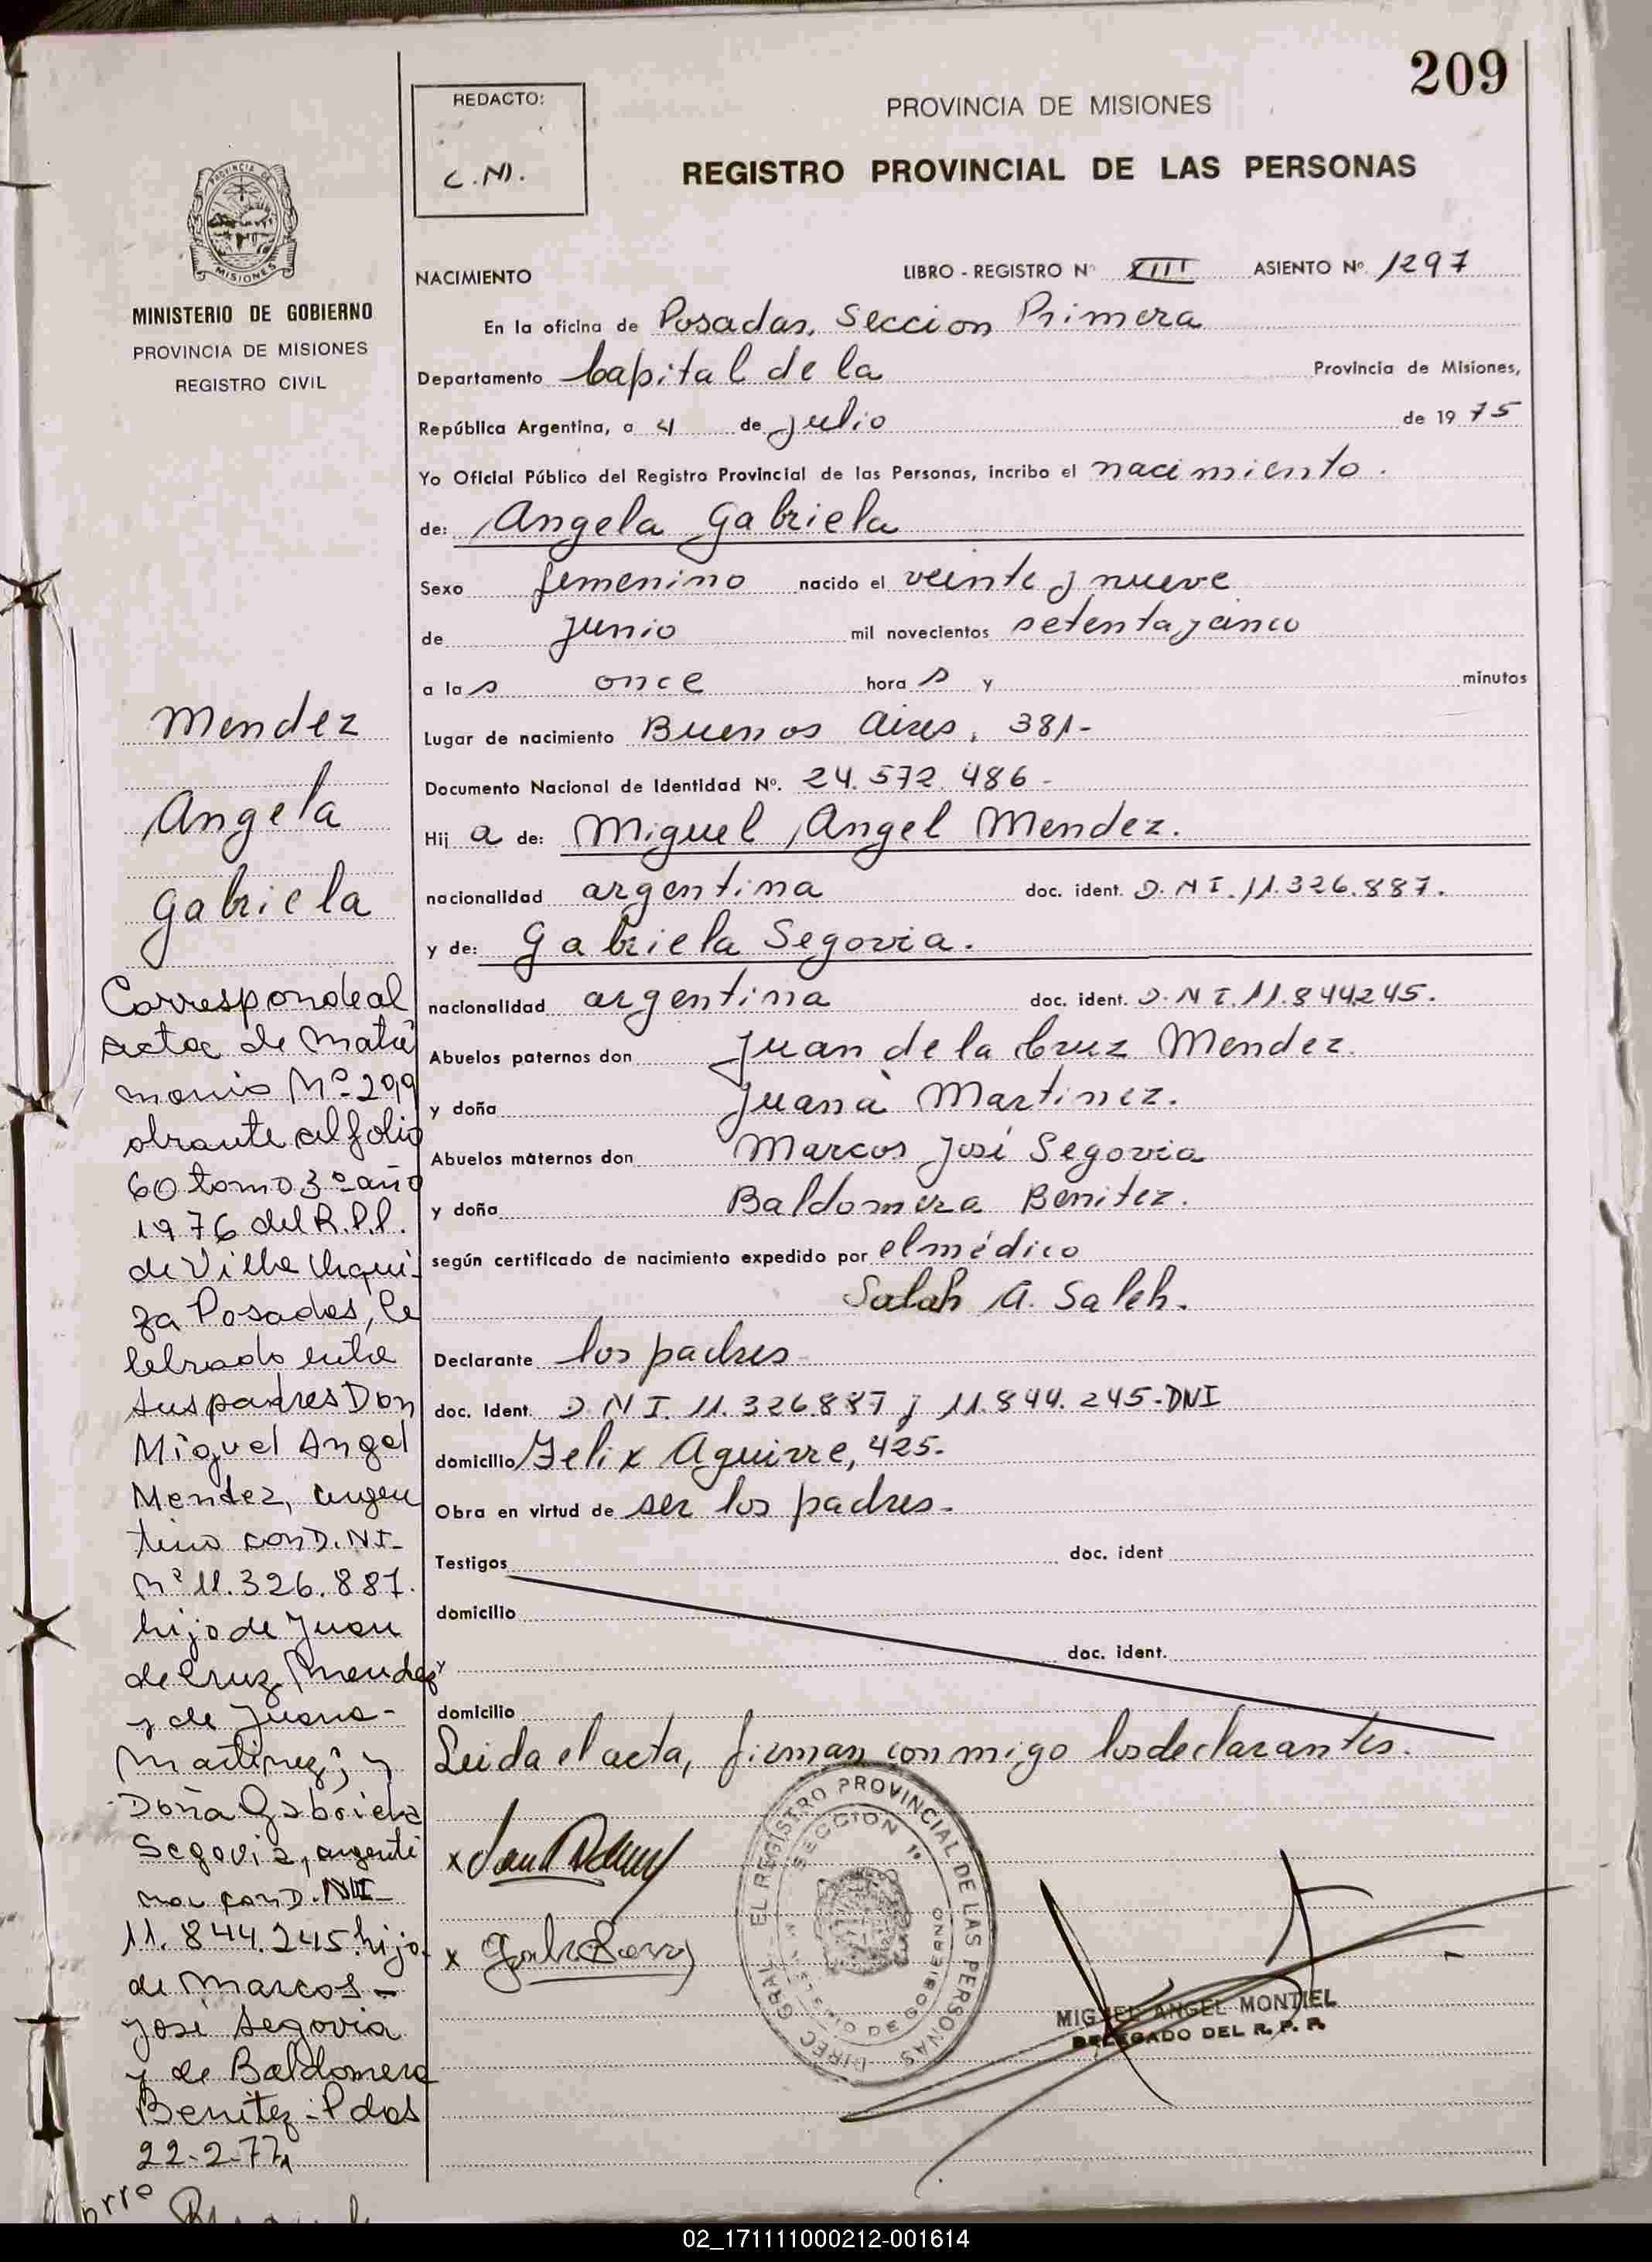 209
REDACTO:
C.N.
PROVINCIA DE MISIONES
REGISTRO PROVINCIAL DE LAS PERSONAS
PROVINCIA DE
MISIONES
MINISTERIO DE GOBIERNO
PROVINCIA DE MISIONES
REGISTRO CIVIL
NACIMIENTO LIBRO - REGISTRO Nº XIII ASIENTO Nº 1297
En la oficina de Posadas, Seccion Primera
Departamento Capital de la Provincia de Misiones,
República Argentina, a 4 de julio de 1975
Yo Oficial Público del Registro Provincial de las Personas, incribo el nacimiento.
de: Angela Gabriela
Sexo femenino nacido el veinte y nueve
de junio mil novecientos setenta y cinco
a las once horas y minutos
Lugar de nacimiento Buenos Aires, 381-
Documento Nacional de Identidad Nº. 24.572.486-
Hija de: Miguel Angel Mendez.
nacionalidad argentina doc. ident. D.N.I. 11.326.887.
y de: Gabriela Segovia.
nacionalidad argentina doc. ident. D.N.I. 11.844245.
Abuelos paternos don Juan de la Cruz Mendez.
y doña Juana Martinez.
Abuelos maternos don Marcos José Segovia
y doña Baldomera Benitez.
según certificado de nacimiento expedido por el médico
Salah A. Saleh.
Declarante los padres
doc. Ident. D.N.I. 11.326887 y 11.844.245-DNI
domicilio Felix Aguirre, 425.
Obra en virtud de ser los padres-
Testigos doc. ident
domicilio
y doc. ident.
domicilio
Leida el acta, firman conmigo los declarantes.
DIREC GRAL. EL REGISTRO PROVINCIAL DE LAS PERSONAS
SECCION 1º
MINISTERIO DE GOBIERNO
MIGUEL ANGEL MONTIEL
DELEGADO DEL R. P. P.
Mendez
Angela
Gabriela
Corresponde al
acta de matri
monio Nº 299
obrante al folio
60 tomo 3º año
1976 del R.P.P.
de Villa Urqui-
za Posadas, ce
lebrado entre
sus padres Don
Miguel Angel
Mendez, argen
tino con D.NI-
Nº 11.326.887.
hijo de Juan
de Cruz Mendez
y de Juana-
Martinez; y
Doña Gabriela
Segovia, argenti
na con D.NI-
11.844.245 hija
de Marcos-
José Segovia
y de Baldomera
Benitez-Pdas
22-2-77
02_171111000212-001614